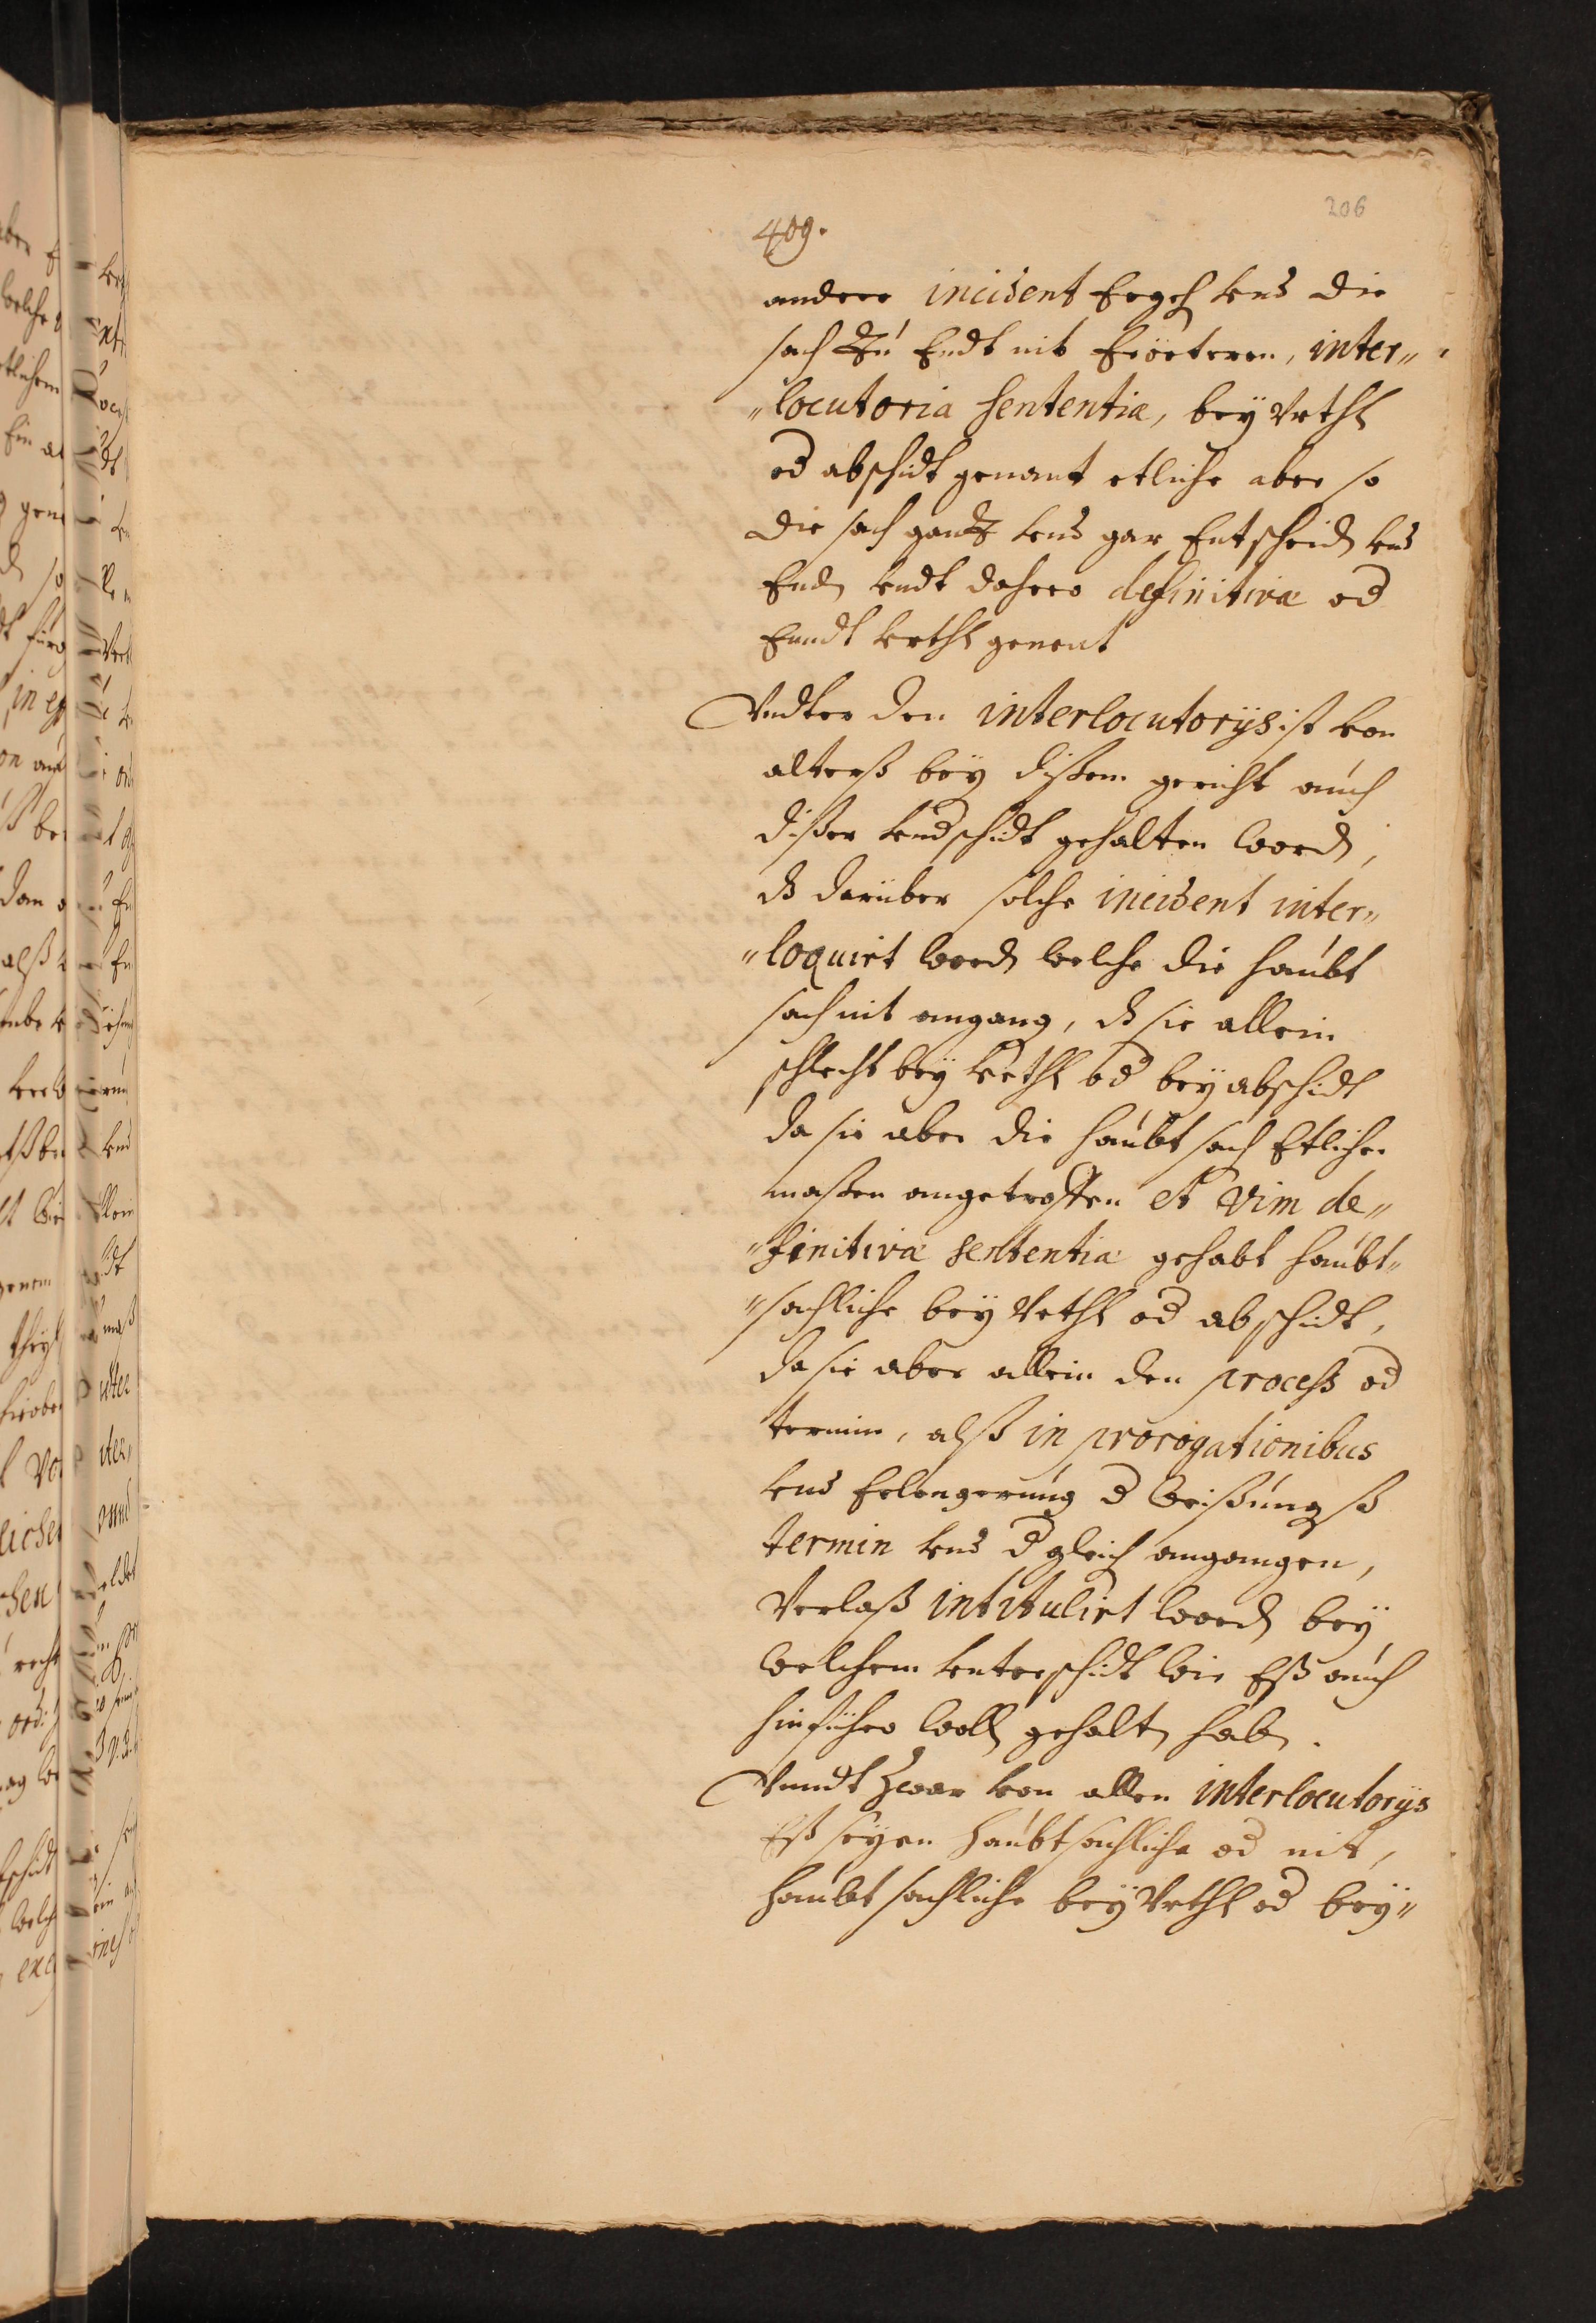 206
409.
andere incident Ergeh vnd die
sach Zu Endt nit Erörteren, inter„
„locutoria sententia, bey Vrthl
od abschidt genant etliche aber so
die sach gantz vnd gar Entscheid vnd
End endt dahero definitiva od
Enndt vrthl genent
Vndter den interlocutorijs ist von
alterß bey dißem gericht auch
dißer vndschidt gehalten word,
dß darüber solche incident inter„
„loquirt word welche die haubt
sach nit angang, dß sie allein
schlecht bey vrthl od bey abschidt
da sie aber die haubt sach Etlicher
maßen angetroffen et vim de„
„finitivæ sententiæ gehabt haubt„
„sachliche bey Vrthl od abschidt,
da sie aber allein den process od
termin, alß in prorogationibus
vnd Erlengerung d Weißungß
termin vnd d gleich angangen,
Verlaß intitulirt word bey
welchem vnterschidt wir Eß auch
hinfüro woll gehalt hab.
Vnndt zwar von allen interlocutorijs
Eß seyen haubtsachliche od nit,
haubt sachliche bey Vrthl od bey„